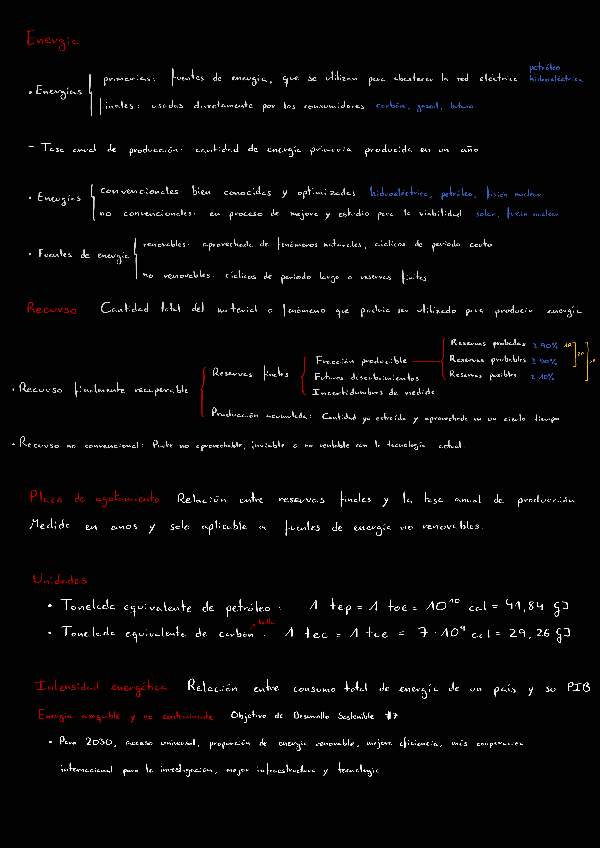 Energía
petróleo
• Energías primarias: fuentes de energía, que se utilizan para abastecer la red eléctrica hidroeléctrica
finales: usadas directamente por los consumidores carbón, gasoil, butano
- Tasa anual de producción: cantidad de energía primaria producida en un año
• Energías convencionales: bien conocidas y optimizadas hidroeléctrica, petróleo, fisión nuclear
no convencionales: en proceso de mejora y estudio para la viabilidad solar, fusión nuclear
• Fuentes de energía renovables: aprovechada de fenómenos naturales, cíclicos de periodo corto
no renovables: cíclicos de periodo largo o reservas finitas
Recurso Cantidad total del material o fenómeno que podría ser utilizado para producir energía
Reservas probadas ≥ 90% 1P
Reservas finales Fracción producible Reservas probables ≥ 50% 2P
Futuros descubrimientos Reservas posibles ≥ 10%
• Recurso finalmente recuperable Incertidumbre de medida
Producción acumulada: Cantidad ya extraída y aprovechada en un cierto tiempo
• Recurso no convencional: Parte no aprovechable, inviable o no rentable con la tecnología actual.
Plazo de agotamiento Relación entre reservas finales y la tasa anual de producción
Medido en anos y solo aplicable a fuentes de energía no renovables.
Unidades
• Tonelada equivalente de petróleo: 1 tep = 1 toe = 10¹⁰ cal = 41,84 GJ
• Tonelada equivalente de carbón: 1 tec = 1 tce = 7·10⁹ cal = 29,26 GJ
Intensidad energética Relación entre consumo total de energía de un país y su PIB
Energía asequible y no contaminada Objetivo de Desarrollo Sostenible #7
• Para 2030, acceso universal, proporción de energía renovable, mejora eficiencia, más cooperación
internacional para la investigación, mejor infraestructura y tecnología